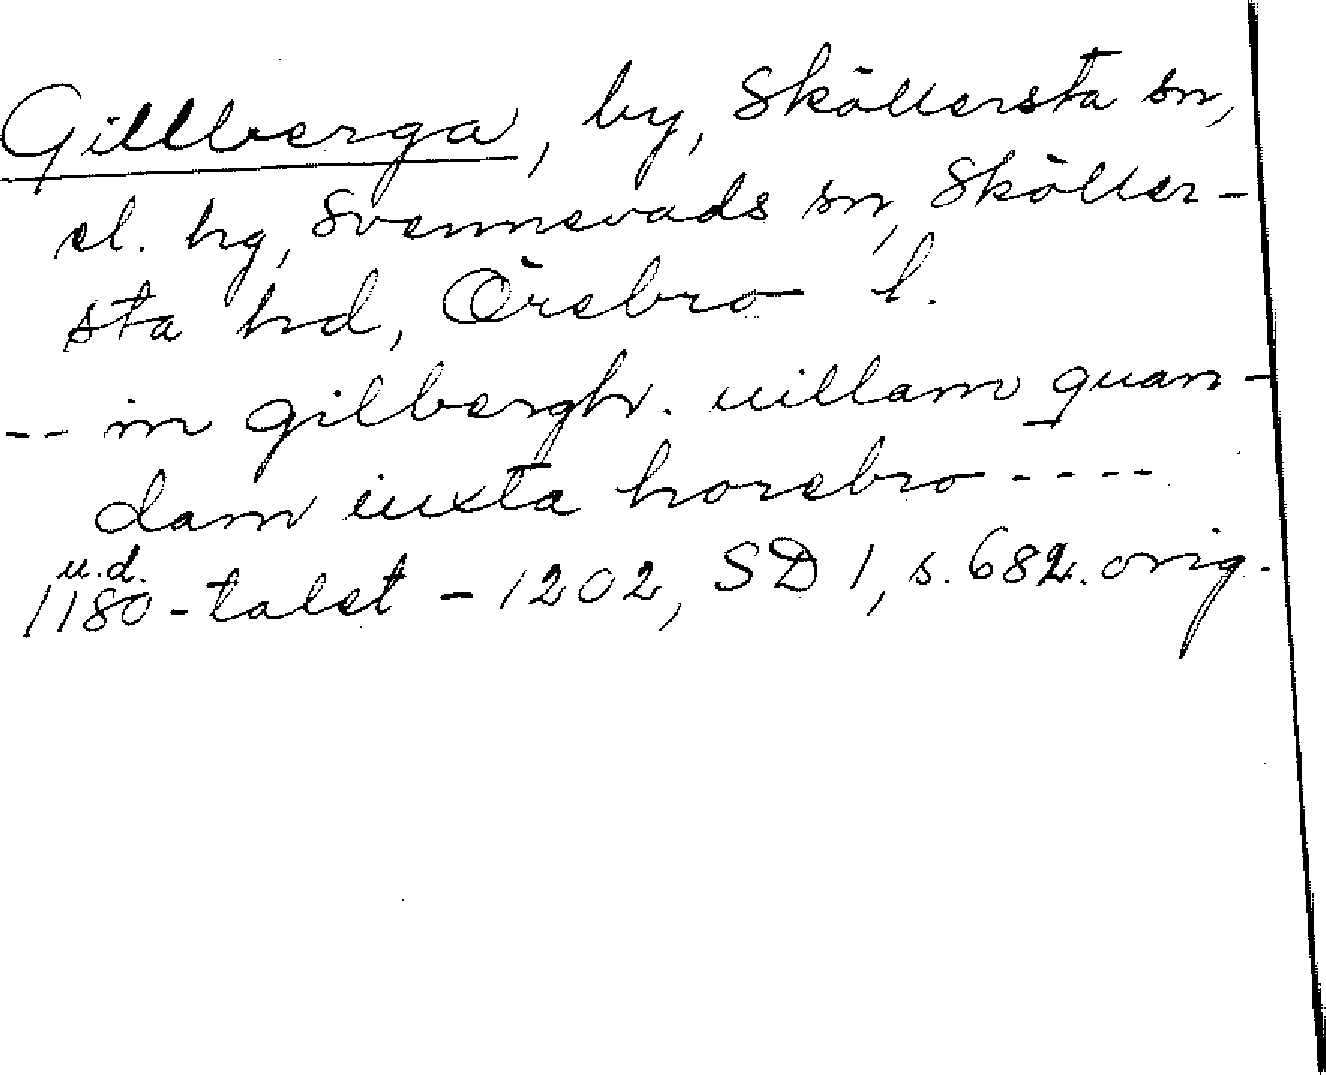 Gillberga, by, Sköllersta sn,
el. hg, Svennevads sn, Sköller-
sta hd, Örebro l.
-- in gilbergh. uillam quan-
dam iuxta horebro ----
u.d.
1180-talet - 1202, SD 1, s. 682. orig.